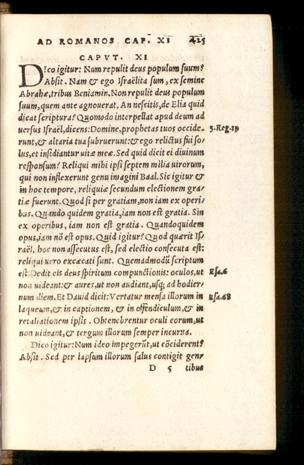 AD ROMANOS CAP. XI 425
CAPVT. XI
DIco igitur: Num repulit deus populum suum?
Absit. Nam & ego Israëlita sum, ex semine
Abrahæ, tribus Beniamin. Non repulit deus populum
suum, quem ante agnouerat. An nescitis, de Elia quid
dicat scriptura? Quomodo interpellat apud deum ad
uersus Israël, dicens: Domine, prophetas tuos occide 3. Reg. 19
runt, & altaria tua subruerunt: & ego relictus fui so
lus, et insidiantur uitæ meæ. Sed quid dicit ei diuinum
responsum? Reliqui mihi ipsi septem milia uirorum,
qui non inflexerunt genu imagini Baal. Sic igitur &
in hoc tempore, reliquiæ secundum electionem gra
tiæ fuerunt. Quod si per gratiam, non iam ex operi
bus. Quando quidem gratia, iam non est gratia. Sin
ex operibus, iam non est gratia. Quandoquidem
opus, iam nō est opus. Quid igitur? Quod quærit Is
raël, hoc non assecutus est, sed electio consecuta est:
reliqui uero excæcati sunt. Quemadmodū scriptum
est: Dedit eis deus spiritum compunctionis: oculos, ut Esa. 6
non uideant: & aures, ut non audiant, usq; ad hodier
num diem. Et Dauid dicit: Vertatur mensa illorum in Psa. 68
laqueum, & in captionem, & in offendiculum, & in
retaliationem ipsis. Obtenebrentur oculi eorum, ut
non uideant, & tergum illorum semper incurua.
Dico igitur: Num ideo impegerūt, ut cōciderent?
Absit. Sed per lapsum illorum salus contigit gen
D 5 tibus